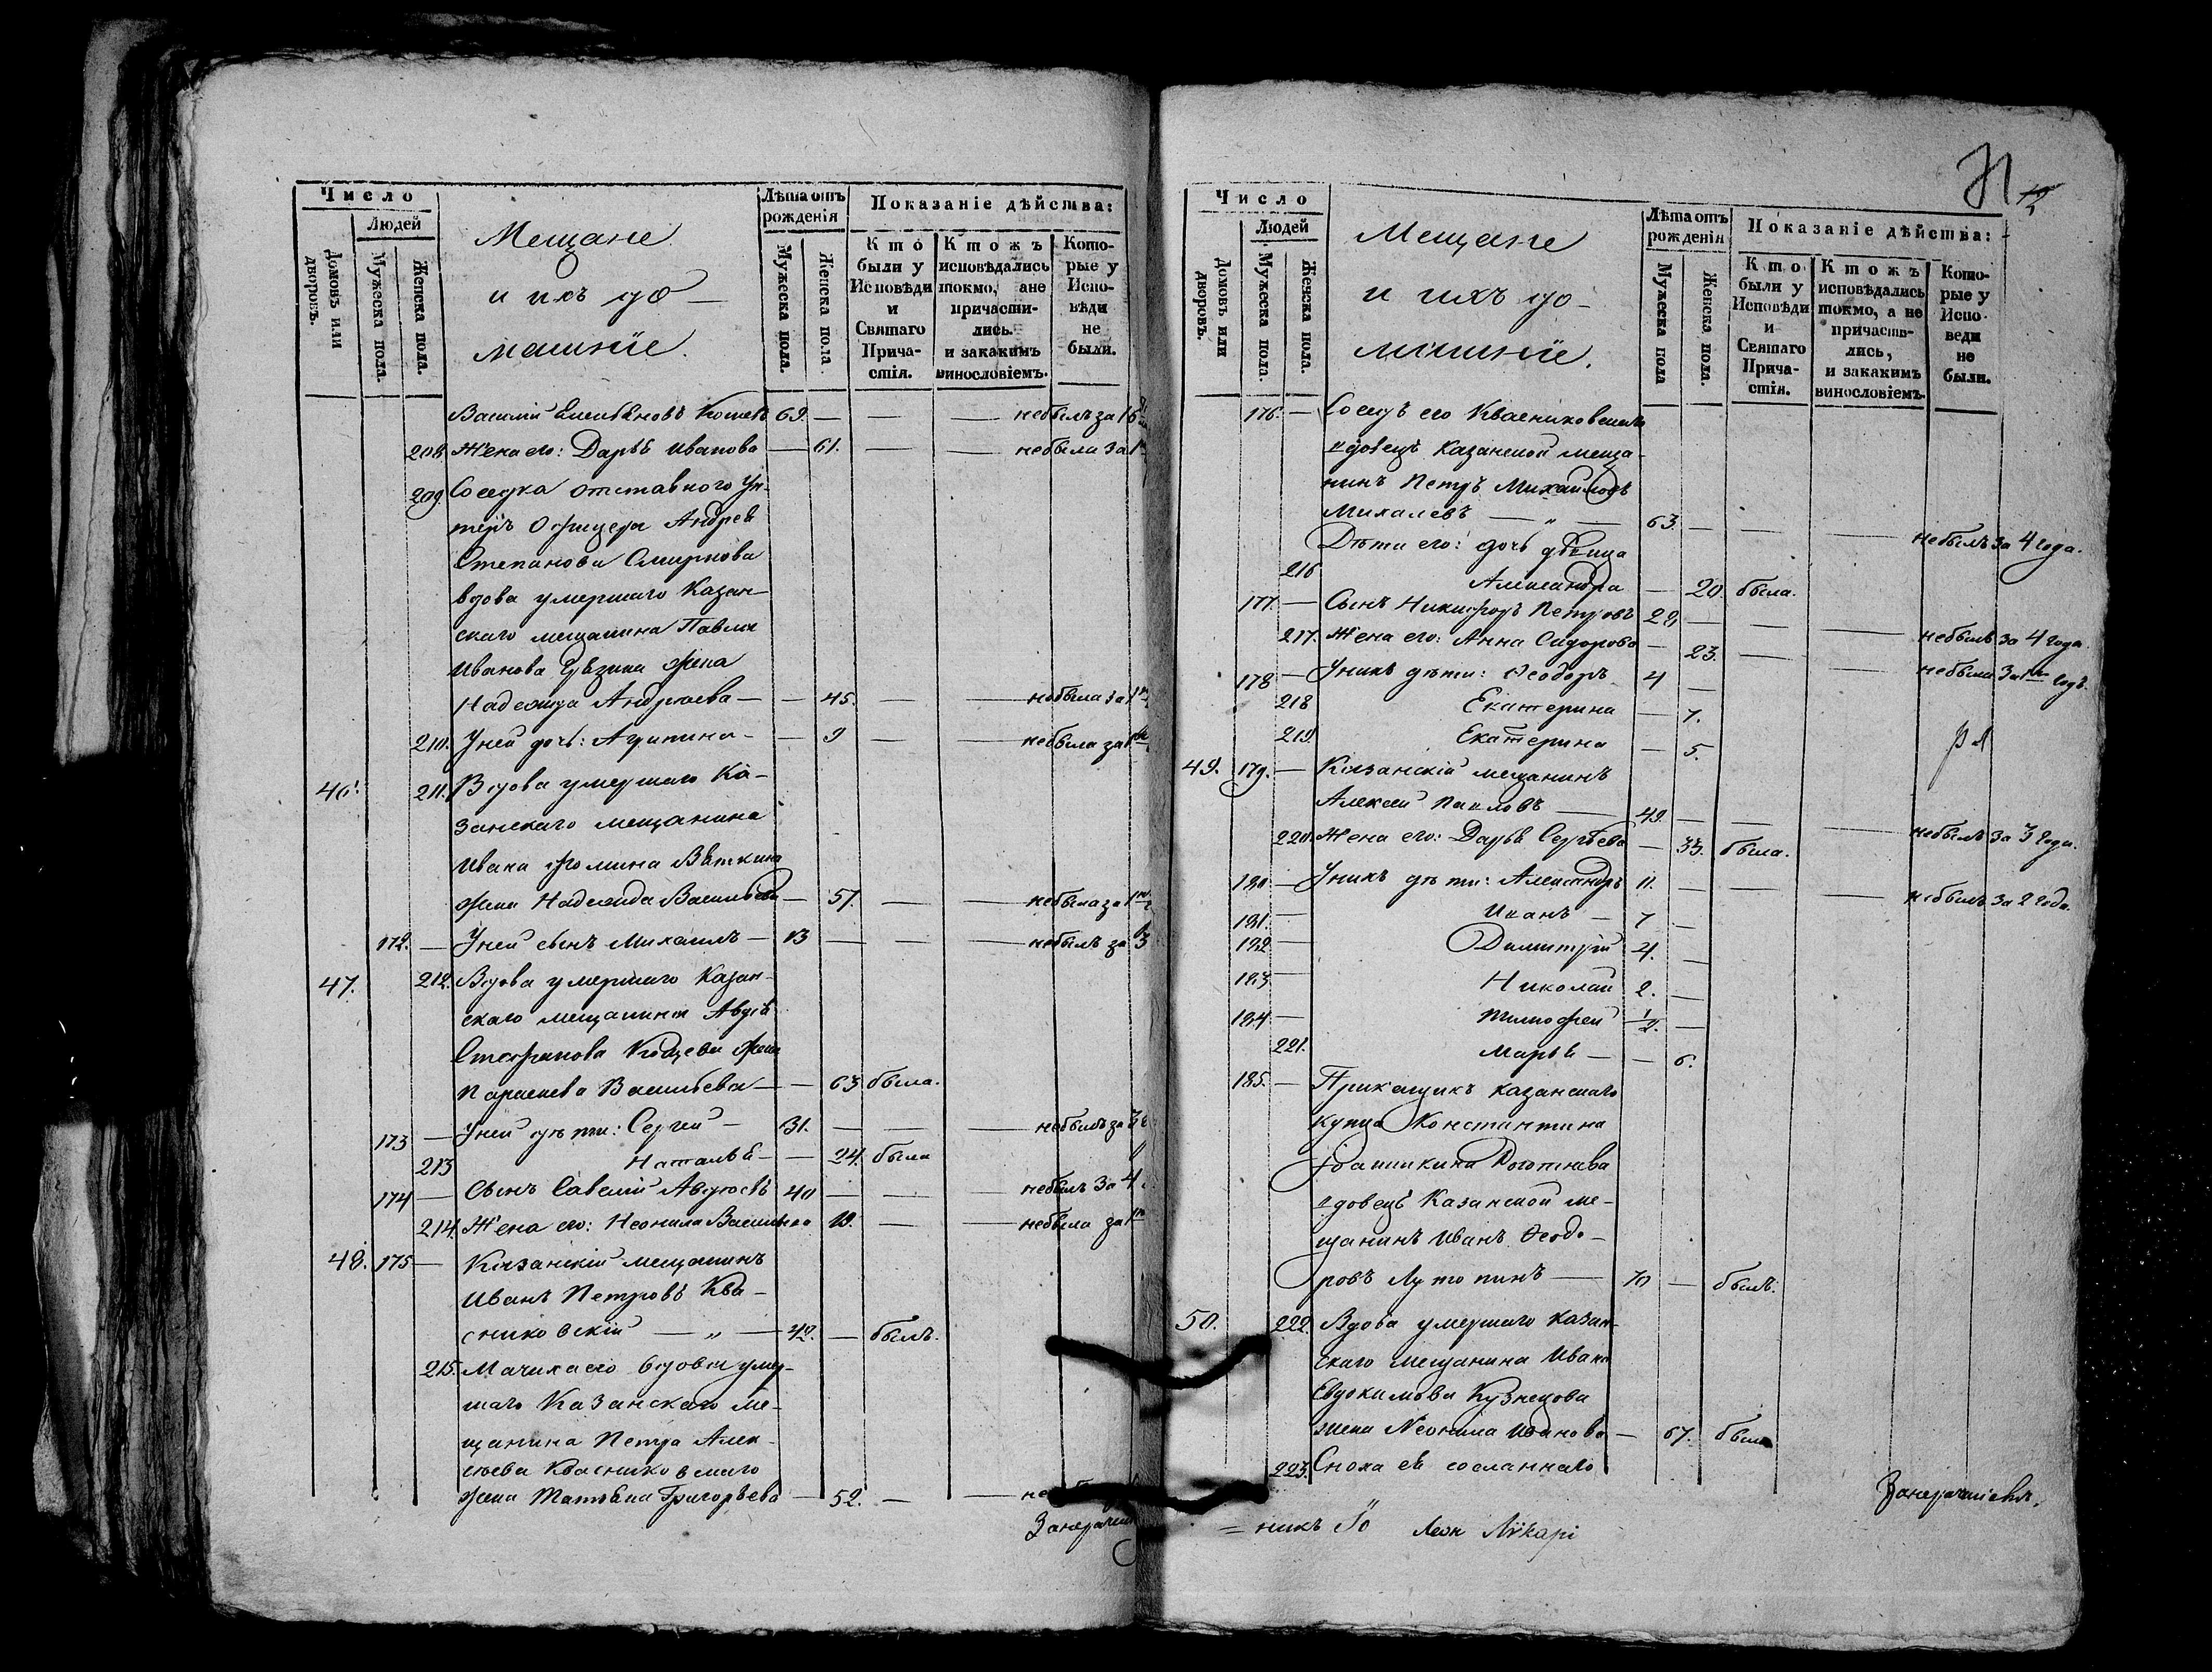 Число
Людей
Домовъ или дворовъ.
Мужеска пола.
Женска пола.
Мещане
и ихъ до-
машніе.
Лѣта отъ рожденія
Мужеска пола.
Женска пола.
Показаніе дѣйства:
Кто были у Исповѣди и Святаго Причастія.
Ктожъ исповѣдались токмо, а не причастились. и закакимъ винословіемъ.
Которые у Исповѣди не были.
Василій 69. — — — небылъ за 16
208. Жена его: Дарья Иванова — 61. — — небыла за 1
209. Соседка отставного Ун-
теръ Офицера Андрея
Степанова Смирнова
вдова умершаго Казан-
скаго мещанина Павла
Иванова жена
Надежда Андреева — — 45. — — небыла за 1
210. Уней дочь: Агрипина — — 9 — — небыла за 1
46. 211. Вдова умершаго Ка-
занскаго мещанина
Ивана Фомина Вяткина
жена Надежда Васильева — 51. — — небыла за 1
172. — Уней сынъ Михаилъ — 13 — — — небылъ за 3
47. 212. Вдова умершаго Казан-
скаго мещанина Авдѣя
Стефанова жена
Параскева Васильева — — 63 была.
173 — Уней дѣти: Сергей — 31. — — — небылъ за 3
213 Наталья — — 24. была
174 — Сынъ Савелій Авдеевъ 40 — — — небылъ за 4
214. Жена его: Неонила Васильева 19. — — небыла за 1
48. 175 — Казанскій мещанинъ
Иванъ Петровъ Ква-
сниковскій — „ — 42. — былъ.
215. Мачиха его вдова умер-
шаго Казанскаго ме-
щанина Петра Алек-
сеева Квасниковскаго
жена Татьяна Григорьева — 52. — —
71
Число
Людей
Домовъ или дворовъ.
Мужеска пола.
Женска пола.
Мещане
и ихъ до-
машніе.
Лѣта отъ рожденія
Мужеска пола
Женска пола.
Показаніе дѣйства:
Кто были у Исповѣди и Святаго Причастія.
Ктожъ исповѣдались токмо, а не причастились, и закакимъ винословіемъ.
Которые у Исповеди не были.
176. — Соседъ его Квасниковскаго
вдовецъ Казанской меща-
нинъ Петръ Михайловъ
Михалевъ — „ — 63. — — — небылъ за 4 года.
Дѣти его: дочь дѣвица
216 Александра — 20. была.
177. — Сынъ Никифоръ Петровъ 29. — — — небылъ за 4 года
217. Жена его: Анна Сидорова — 23. — — небыла за 1 годъ.
178 — Унихъ дѣти: Ѳеодоръ 4 —
218 Екатерина — 7.
219. Екатерина — 5.
49. 179. — Казанскій мещанинъ
Алексей Павловъ — 49. — — — небылъ за 3 года.
220. Жена его: Дарья Сергѣева — 33. была.
180. — Унихъ дѣти: Александръ 11. — — — небылъ за 2 года.
181. — Иванъ — 7 —
182 — Димитрій 4. —
183 — Николай 2. —
184 — Тимофей 1/2. —
221. Марья — — 6.
185. — Прикащикъ казанскаго
купца Константина
вдовецъ Казанской ме-
щанинъ Иванъ Ѳеодо-
ровъ Лутошинъ — 70 — былъ.
50. 222. Вдова умершаго казан-
скаго мещанина Ивана
Евдокимова Кузнецова
жена Неонила Иванова — 67. была
223. Сноха ея сосланнаго